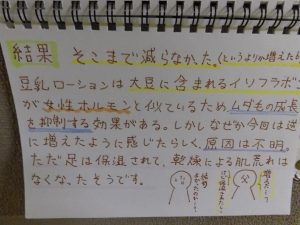 結果 そこまで減らなかった。(というよりか増えた
豆乳ローションは大豆に含まれるイソフラボン
が女性ホルモンと似ているため、ムダ毛の成長
を抑制する効果がある。しかしなぜか今回は逆
に増えたように感じたらしく、原因は不明。
ただ足は保湿されて、乾燥による肌荒れは
なくなったそうです。